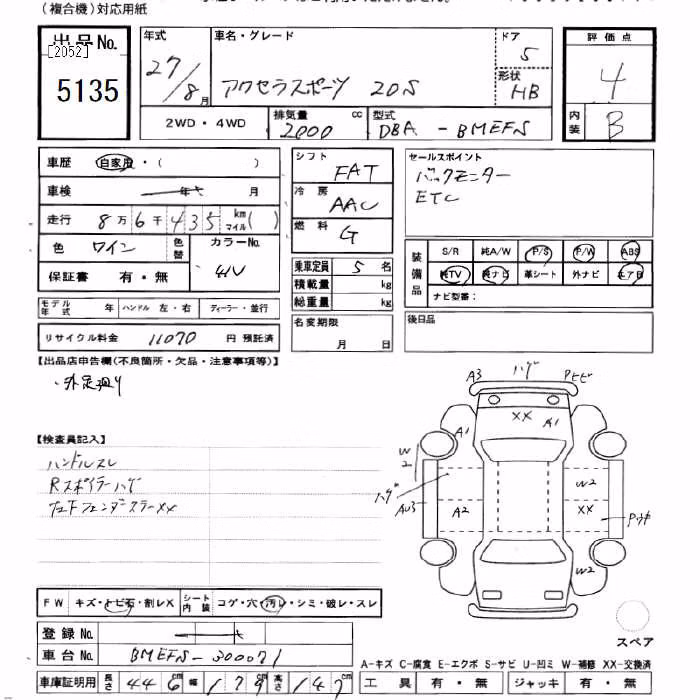 (複合機)対応用紙
出品No.
[2052]
5135
年式
27/8月
車名・グレード
アクセラスポーツ 20S
ドア
5
形状
HB
評価点
4
内装
B
2WD・4WD
排気量
2000 cc
型式
DBA - BMEFS
車歴 自家用・( )
車検 年 月
走行 8万6千435 km マイル( )
色 ワイン 色替
カラーNo.
41V
保証書 有・無
モデル年式 年 ハンドル 左・右 ディーラー・並行
リサイクル料金 11070 円 預託済
シフト
FAT
冷房
AAC
燃料
G
乗車定員 5 名
積載量 kg
総重量 kg
名変期限
月 日
セールスポイント
バックモニター
ETC
装備品
S/R 純A/W P/S P/W ABS
純TV 純ナビ 革シート 外ナビ エアB
ナビ型番:
後日品
【出品店申告欄(不良箇所・欠品・注意事項等)】
・外足廻り
【検査員記入】
ハンドルスレ
Rスポイラーハゲ
フェンダーステーXX
A3 ハゲ Pヒビ
XX A1
A1
W2
ハゲ
AU3
A2
W2
XX
Pウキ
W2
スペア
FW キズ・トビ石・割レX シート内装 コゲ・穴・汚レ・シミ・破レ・スレ
登録No.
車台No. BMEFS-300071
車庫証明用 長さ 446 幅 179 高さ 147
A-キズ C-腐食 E-エクボ S-サビ U-凹ミ W-補修 XX-交換済
工具 有・無 ジャッキ 有・無